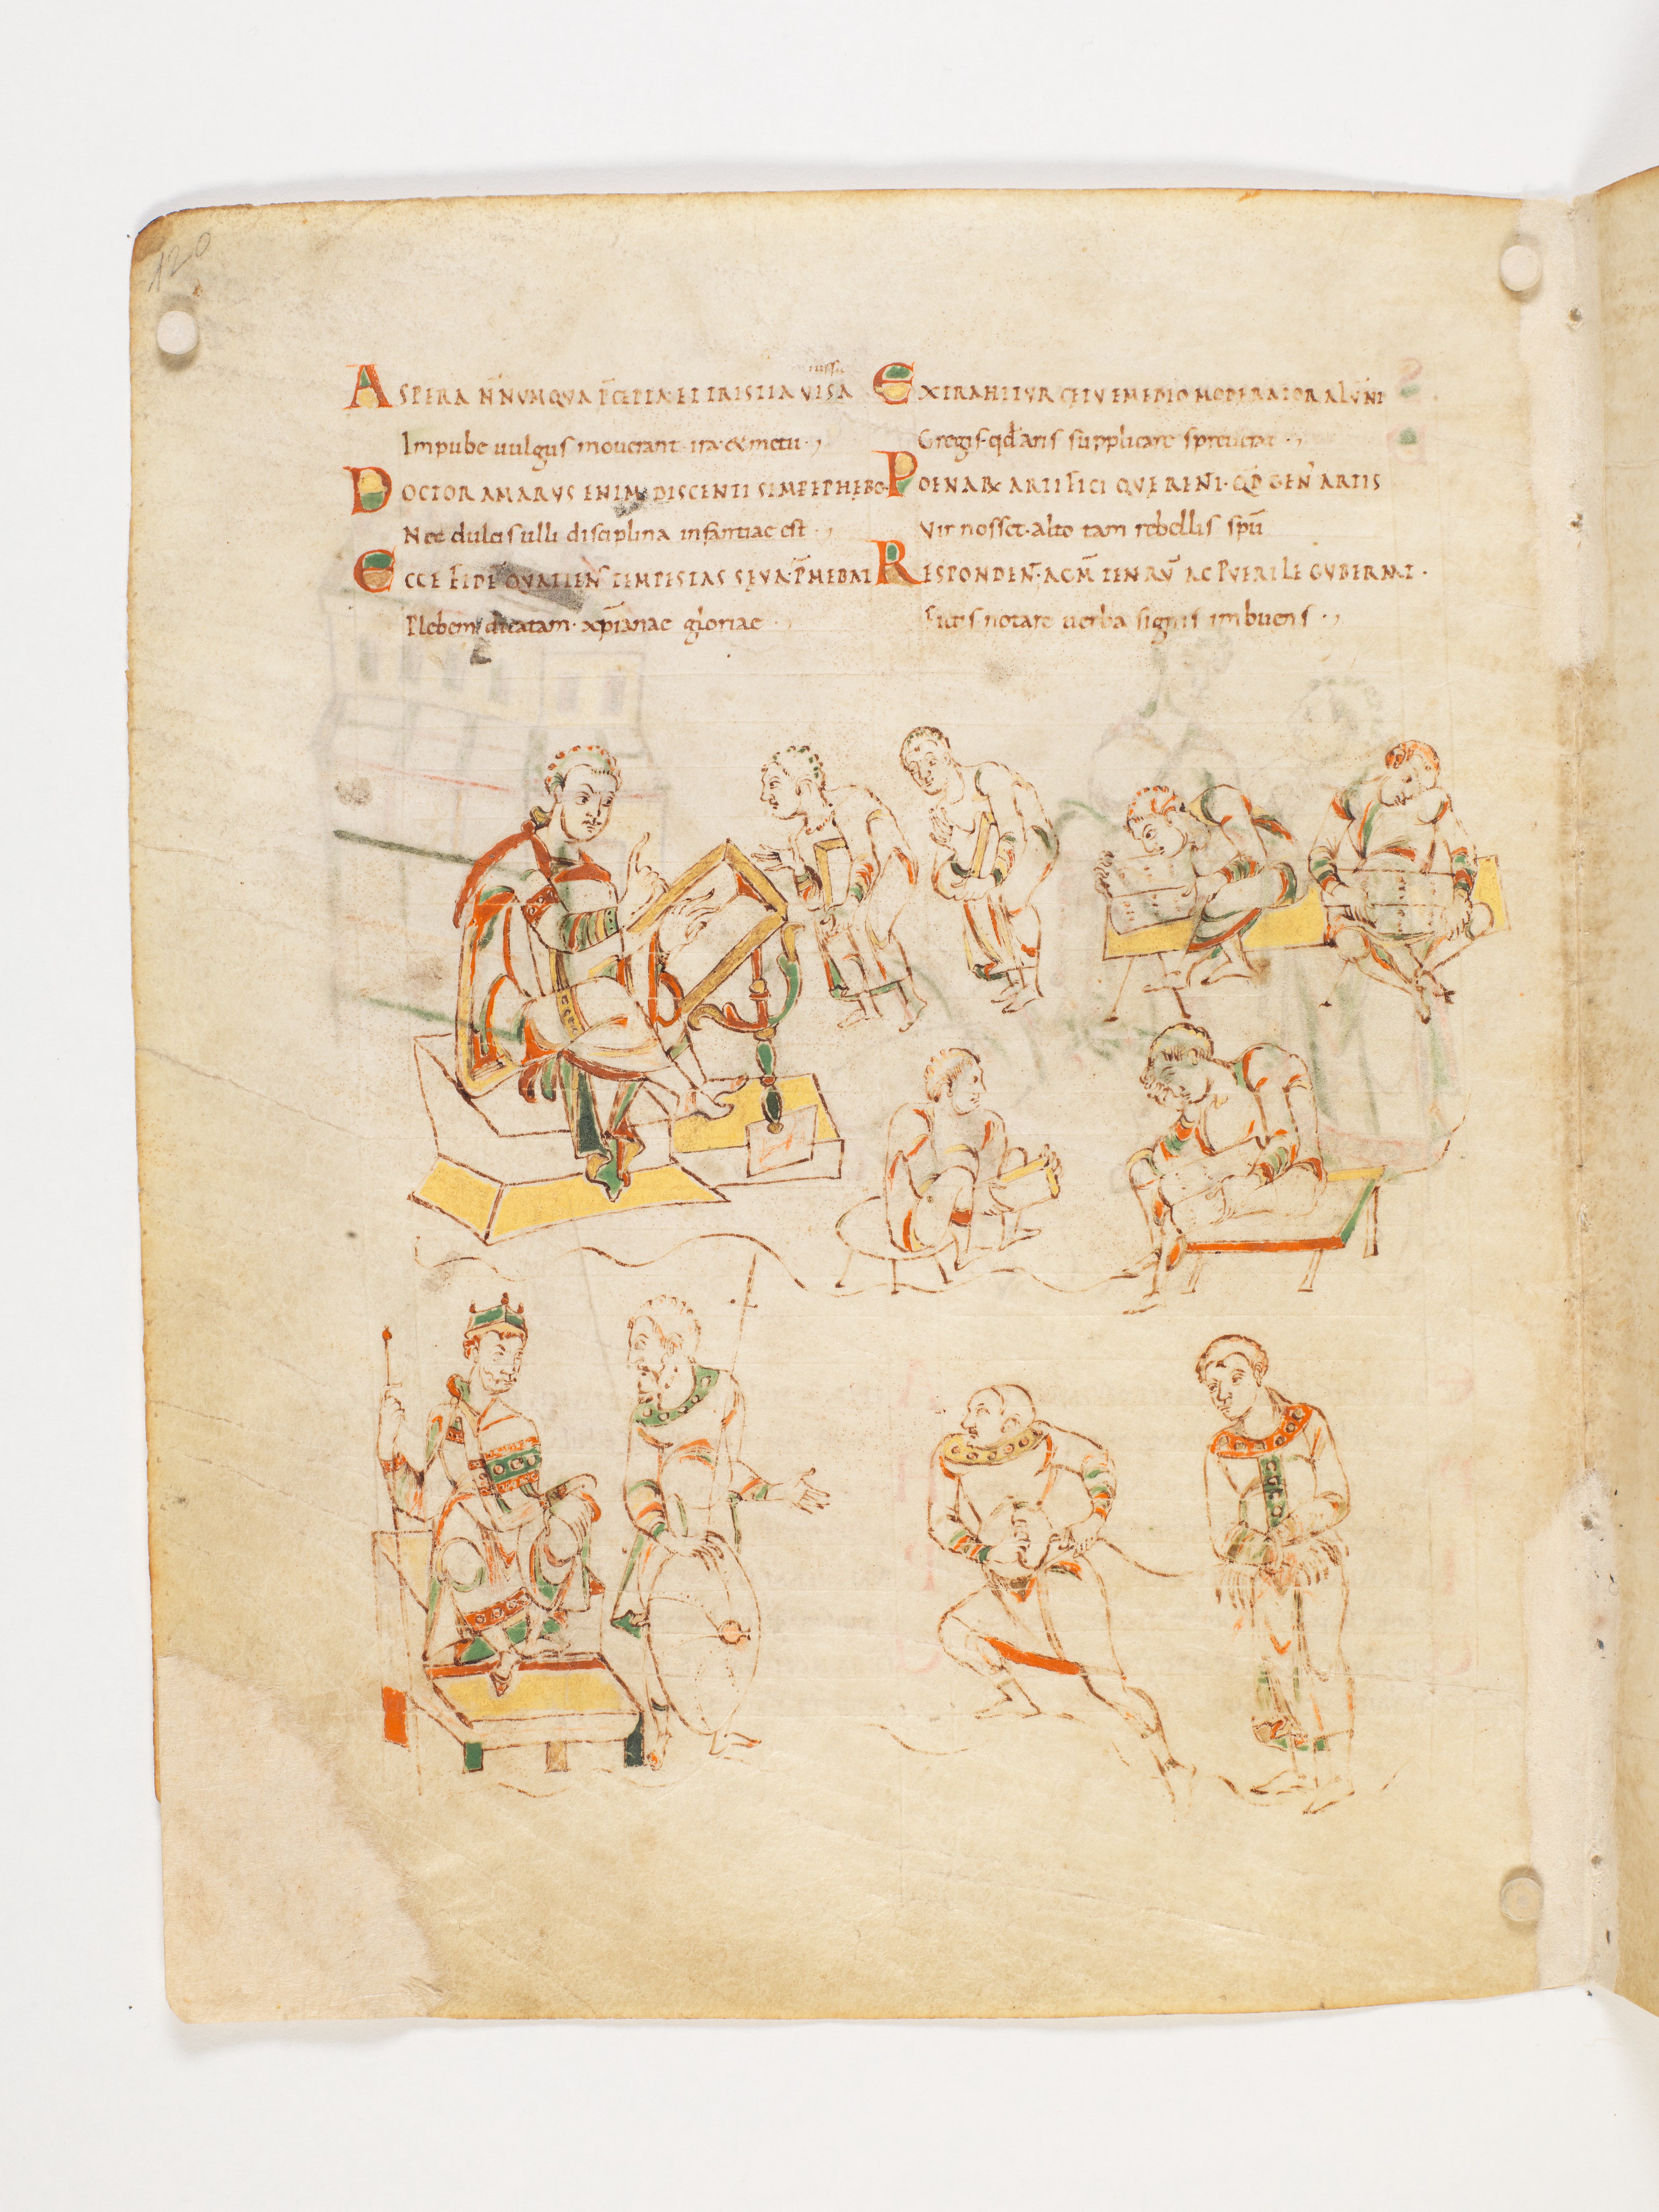 120
ASPERA NNVMQVA PCEPTA ET TRISTIA VISA
Impube uulgus mouerant · ira & metu ·
DOCTOR AMARVS ENIM DISCENTI SEMP EPHEBO
Nec dulcis ulli disciplina infantiae est ·
ECCE FIDE QVATIEN TEMPESTAS SEVA PMEBAT
Plebem dicatam · xpianae gloriae ·
EXTRAHITVR CETV E MEDIO MODERATOR ALVNI
Gregis · qd aris supplicare spreuerat ·
POENARX ARTIFICI QVERENTI · QD GEN ARTIS
Vir nosset · alto tam rebellis spu
RESPONDEN · AGM TENRV AC PVERILE GVBERNAT ·
Fictis notare uerba signis imbuens ·